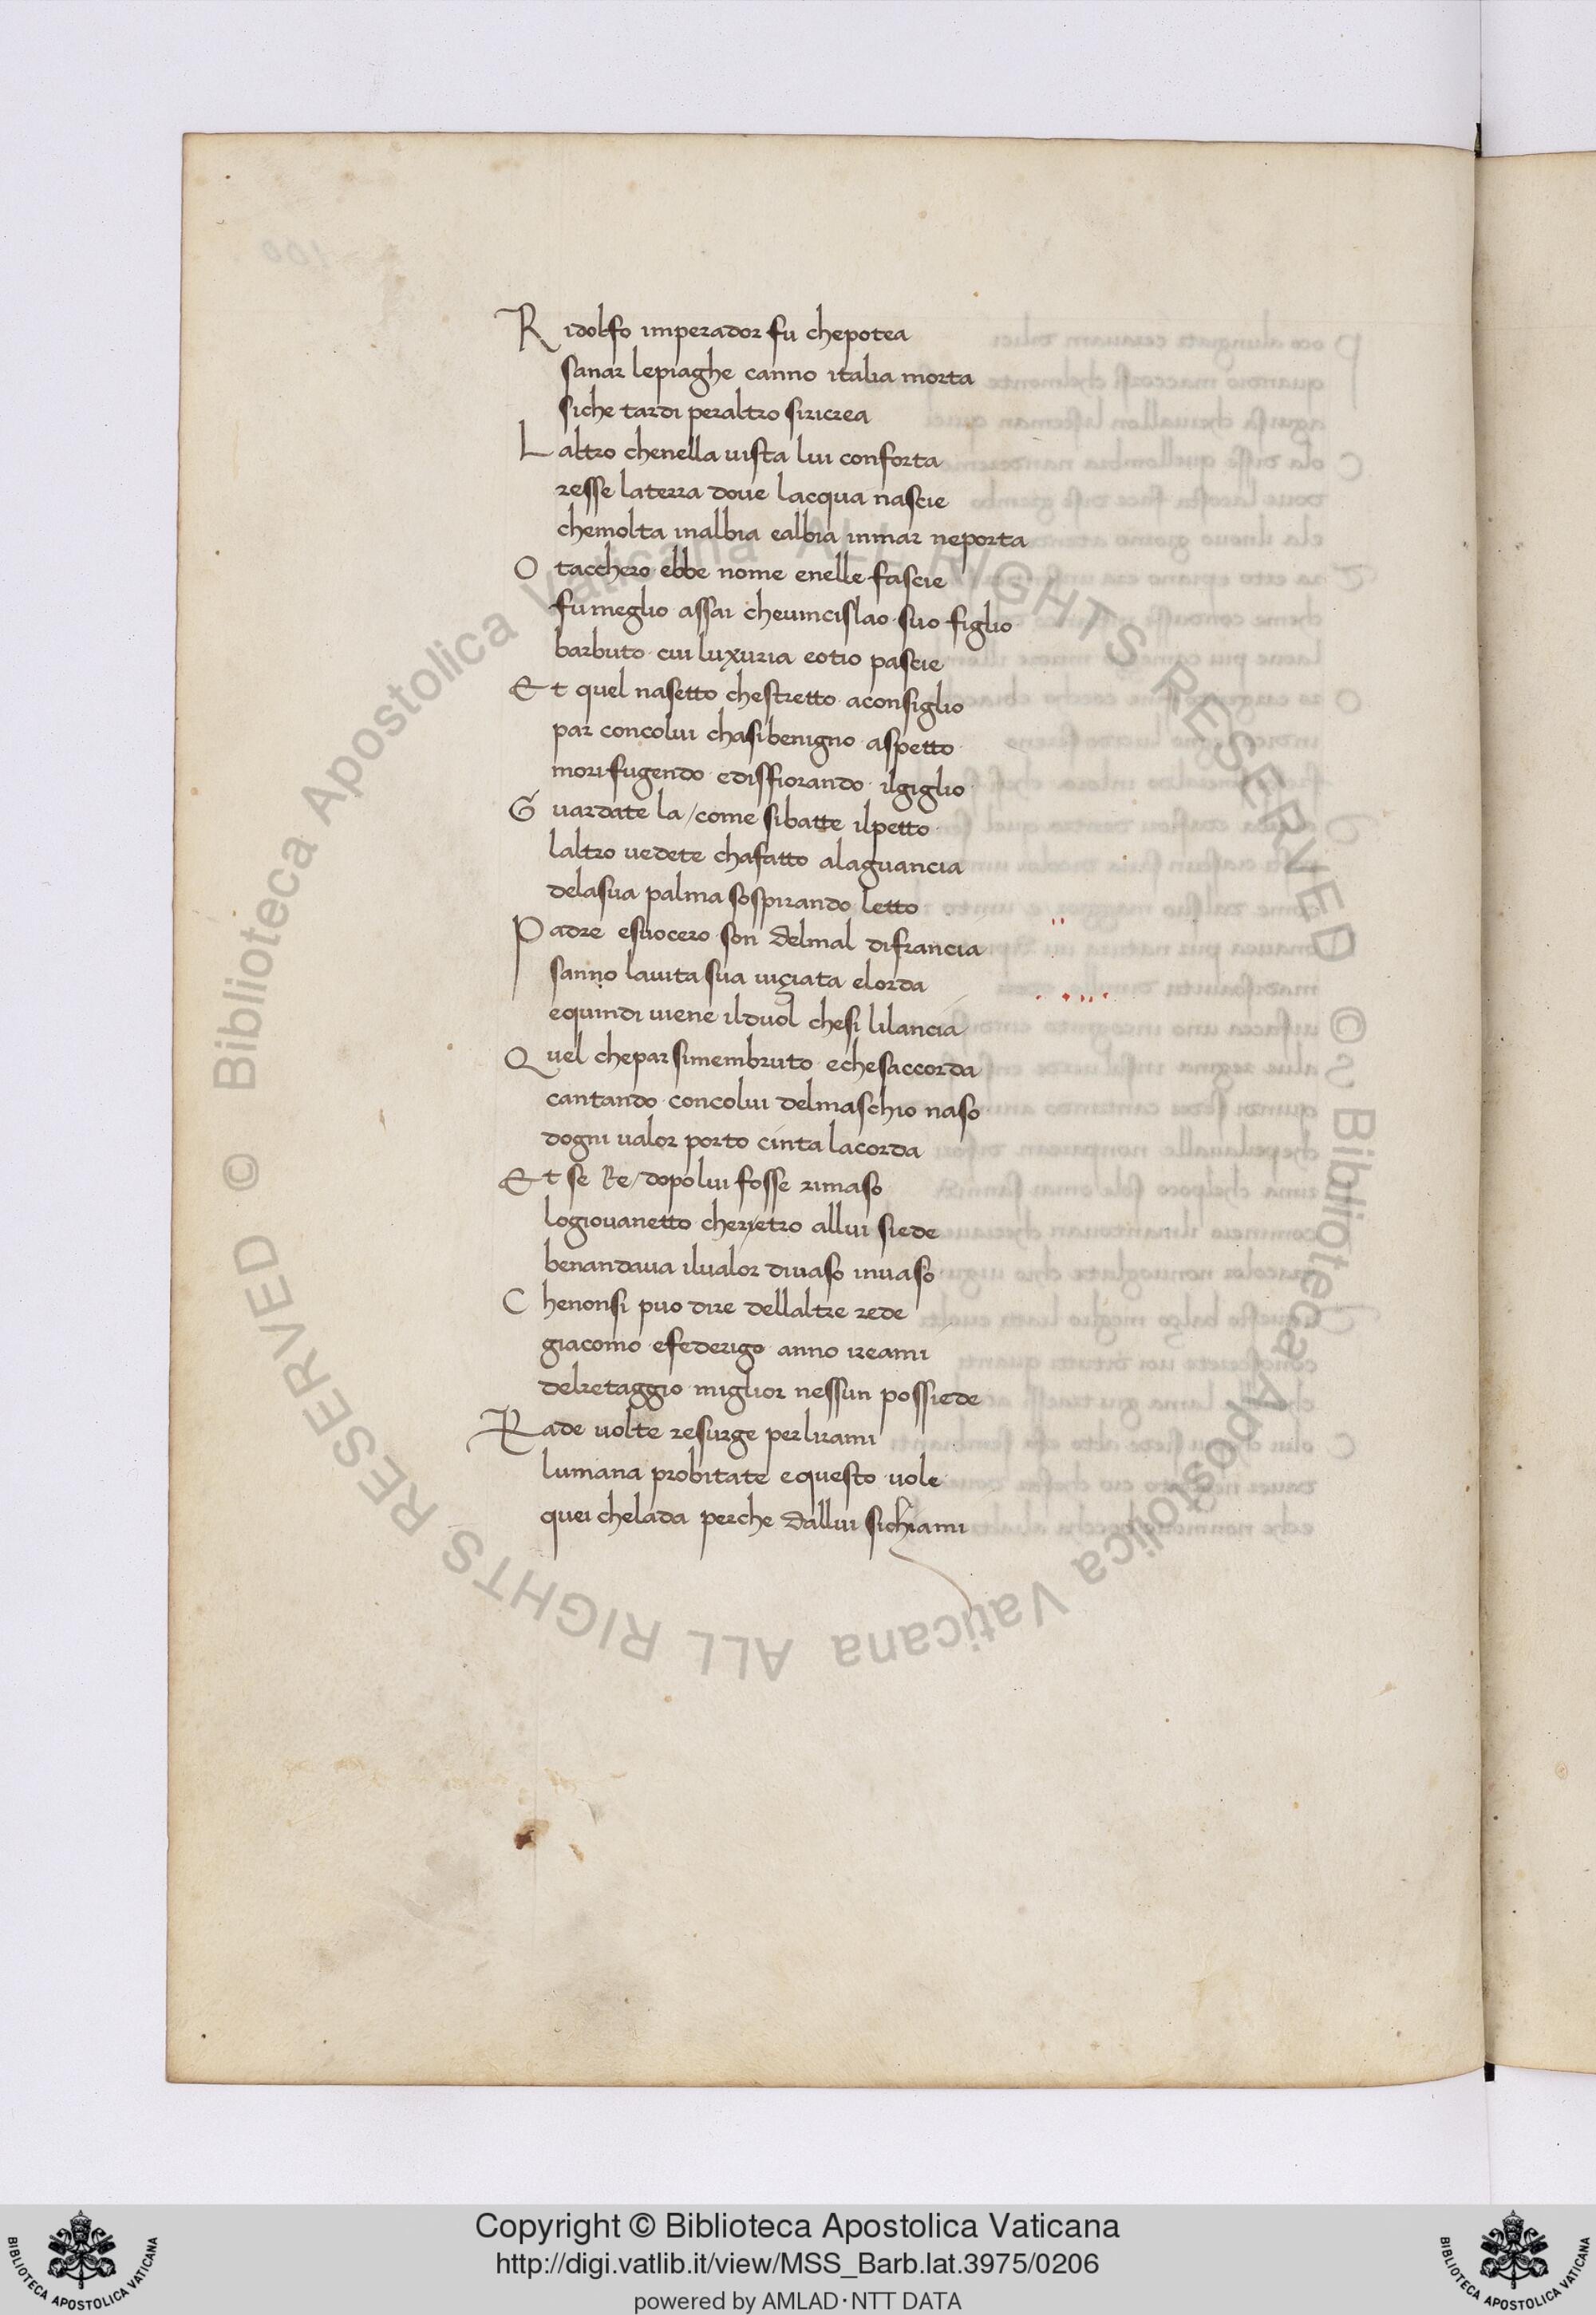 Ridolfo imperador fu chepotea
sanar lepiaghe canno italia morta
siche tardi peraltro siricrea
Laltro chenella uista lui conforta
resse laterra doue lacqua nascie
chemolta inalbia ealbia inmar neporta
Otacchero ebbe nome enelle fascie
fumeglio assai cheuincislao suo figlio
barbuto cui luxuria eotio pascie
Et quel nasetto chestretto aconsiglio
par concolui chasibenigno aspetto
morifugendo edisfiorando ilgiglio
Guardate la / come sibatte ilpetto
laltro uedete chafatto alaguancia
delasua palma sospirando letto
Padre esuocero son delmal difrancia
sanno lauita sua uiçiata elorda
equindi uiene ilduol chesi lilancia
Quel chepar simembruto echesaccorda
cantando concolui delmaschio naso
dogni ualor porto cinta lacorda
Et se Re / dopolui fosse rimaso
logiouanetto cherietro allui siede
benandaua ilualor diuaso inuaso
Chenonsi puo dire dellaltre rede
giacomo efederigo anno ireami
delretaggio miglior nessun possiede
Rade uolte resurge perlirami
lumana probitate equesto uole
quei chelada perche dallui sichiami
© Biblioteca Apostolica Vaticana ALL RIGHTS RESERVED
© Biblioteca Apostolica Vaticana ALL RIGHTS RESERVED
Copyright © Biblioteca Apostolica Vaticana
http://digi.vatlib.it/view/MSS_Barb.lat.3975/0206
powered by AMLAD·NTT DATA
BIBLIOTECA APOSTOLICA VATICANA
BIBLIOTECA APOSTOLICA VATICANA